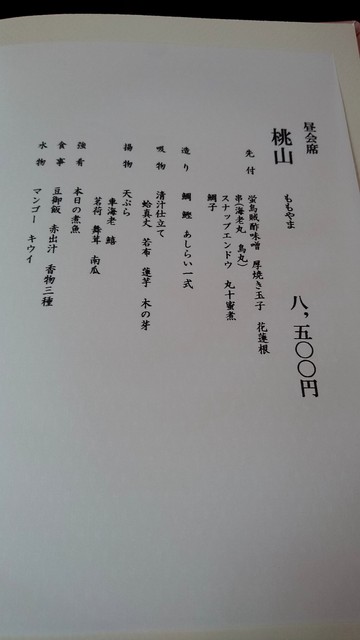 昼会席
桃山 ももやま 八,五〇〇円
先付 蛍烏賊酢味噌 厚焼き玉子 花蓮根
串(海老丸 鳥丸)
スナップエンドウ 丸十蜜煮
鯛子
造り 鯛 鰹 あしらい一式
吸物 清汁仕立て
蛤真丈 若布 蓮芋 木の芽
揚物 天ぷら
車海老 鱚
茗荷 舞茸 南瓜
強肴 本日の煮魚
食事 豆御飯 赤出汁 香物三種
水物 マンゴー キウイ